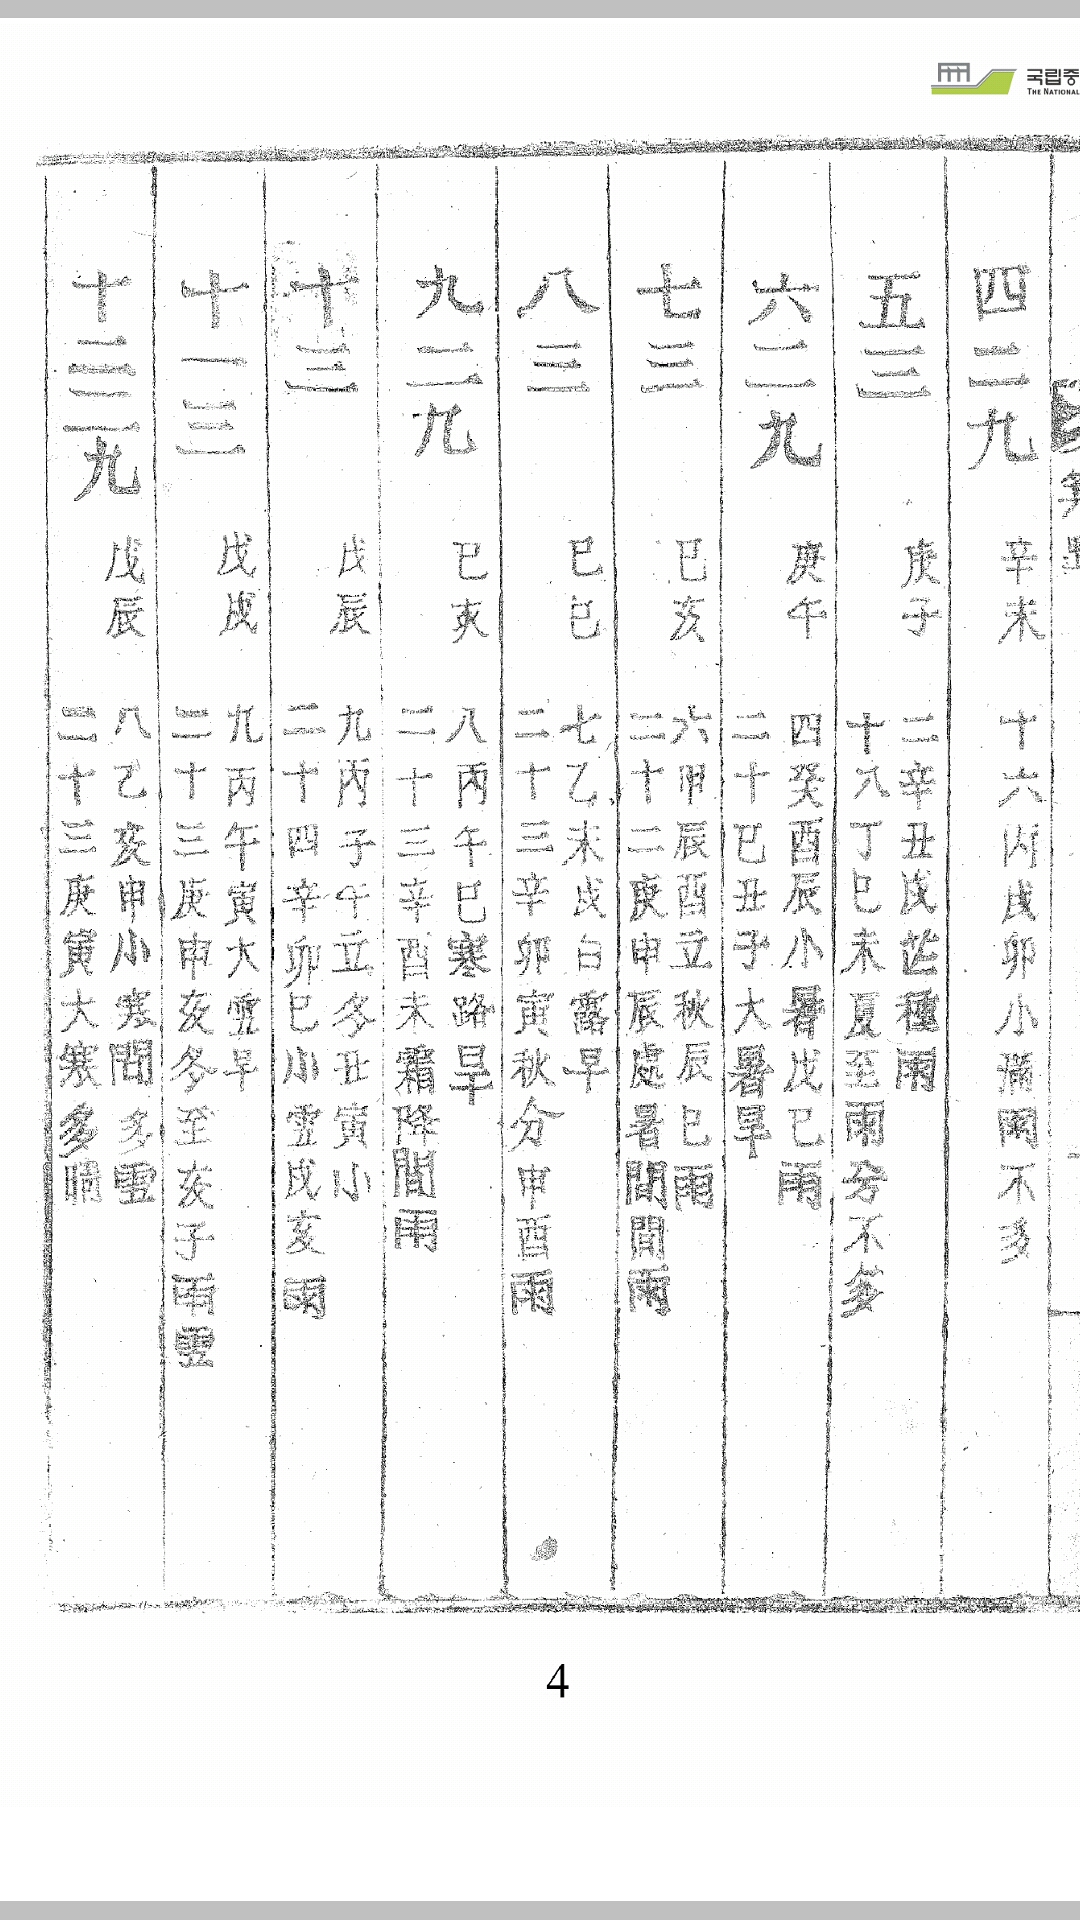 국립중
THE NATIONAL
四二九 辛未 十六丙戌卯小滿雨不多
五三 庚子 二辛丑戌芒種雨
十八丁巳未夏至雨分不多
六二九 庚午 四癸酉辰小暑戊巳雨
二十巳丑子大暑早
七三 巳亥 六甲辰酉立秋辰巳雨
二十二庚申辰處暑間間雨
八三 巳巳 七乙未戌白露早
二十三辛卯寅秋分申酉雨
九二九 巳亥 八丙午巳寒路早
二十三辛酉未霜降間雨
十三 戊辰 九丙子午立冬丑寅小
二十四辛卯巳小雪戌亥雨
十一三 戊戌 九丙午寅大雪早
二十三庚申亥冬至亥子雨雪
十二二九 戊辰 八乙亥申小寒間多雪
二十三庚寅大寒多晴
4